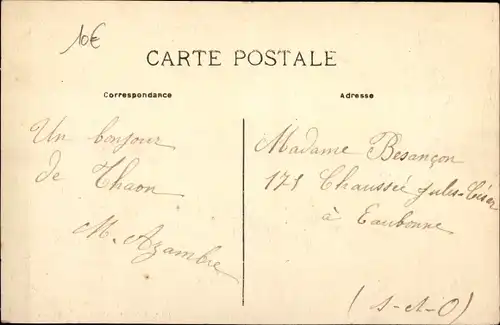 10€
CARTE POSTALE
Correspondance
Adresse
Un bonjour
de Thaon
M. Azambre
Madame Besançon
171 Chaussée Jules-César
à Eaubonne
(S-et-O)